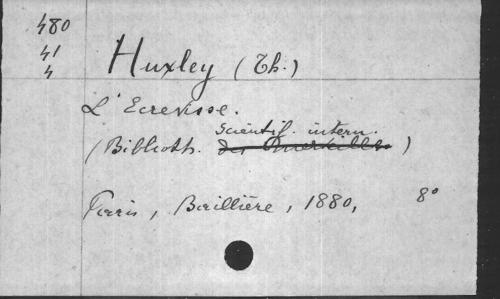 480
41
4
Huxley (Th.)
L'Ecrevisse.
scientif. intern.
(Biblioth. des Merveilles)
Paris, Baillière, 1880, 8°